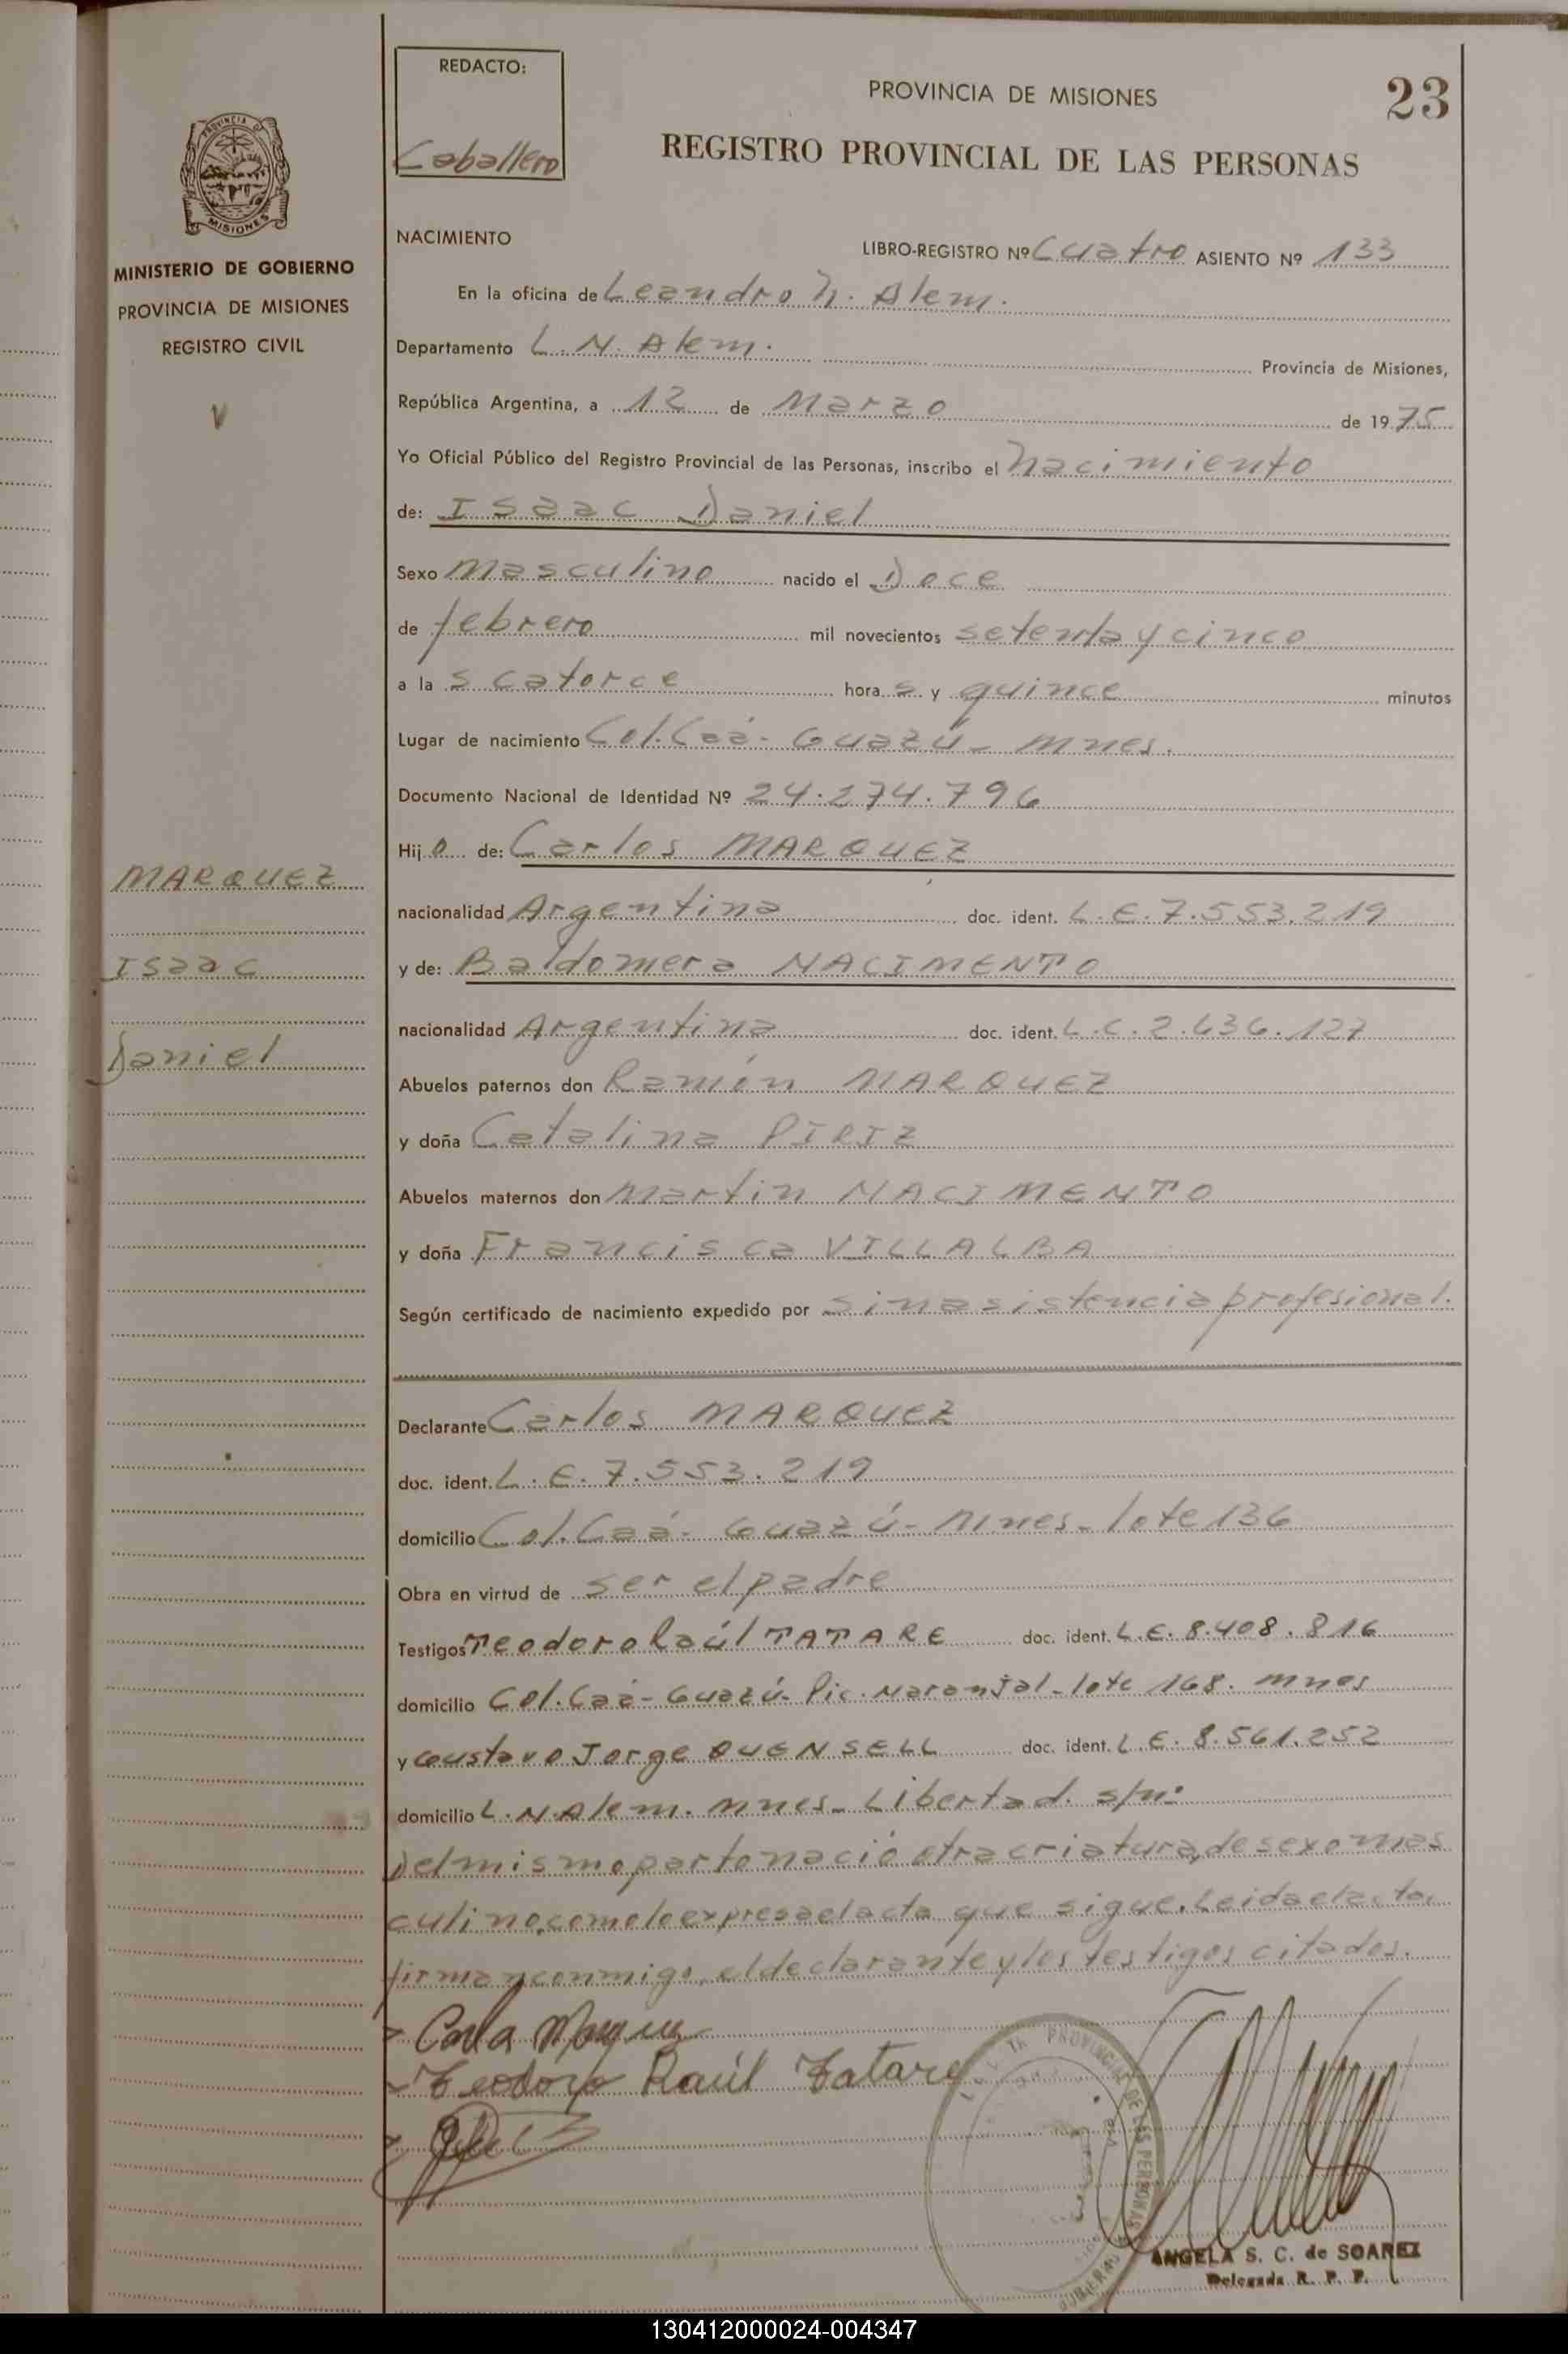 REDACTO:
Caballero
PROVINCIA DE MISIONES
23
REGISTRO PROVINCIAL DE LAS PERSONAS
PROVINCIA DE
MISIONES
MINISTERIO DE GOBIERNO
PROVINCIA DE MISIONES
REGISTRO CIVIL
V
MARQUEZ
Isaac
Daniel
NACIMIENTO
LIBRO-REGISTRO Nº Cuatro ASIENTO Nº 133
En la oficina de Leandro N. Alem.
Departamento L. N. Alem. Provincia de Misiones,
República Argentina, a 12 de Marzo de 1975
Yo Oficial Público del Registro Provincial de las Personas, inscribo el nacimiento
de: Isaac Daniel
Sexo masculino nacido el Doce
de febrero mil novecientos setenta y cinco
a la s catorce hora s y quince minutos
Lugar de nacimiento Col. Caá-Guazú- Mnes.
Documento Nacional de Identidad Nº 24.274.796
Hij o de: Carlos MARQUEZ
nacionalidad Argentina doc. ident. L.E. 7.553.219
y de: Baldomera NACIMENTO
nacionalidad Argentina doc. ident. L.C. 2.636.127
Abuelos paternos don Ramón MARQUEZ
y doña Catalina PIRIZ
Abuelos maternos don Martin NACIMENTO
y doña Francisca VILLALBA
Según certificado de nacimiento expedido por sin asistencia profesional.
Declarante Carlos MARQUEZ
doc. ident. L.E. 7.553.219
domicilio Col. Caá-Guazú- Mnes- lote 136
Obra en virtud de ser el padre
Testigos Teodoro Raúl TATARE doc. ident. L.E. 8.408.816
domicilio Col. Caá-Guazú- Pic. Naranjal- lote 168. Mnes
y Gustavo Jorge QUENSELL doc. ident. L.E. 8.561.252
domicilio L. N. Alem. Mnes- Libertad. s/nº
Del mismo parto nació otra criatura, de sexo mas
culino, como lo expresa el acta que sigue. Leida el acta,
firman conmigo, el declarante y los testigos citados.
Teodoro Raúl Tatare
PROVINCIAL DE LAS PERSONAS
ANGELA S. C. de SOAREZ
Delegada R. P. P.
130412000024-004347